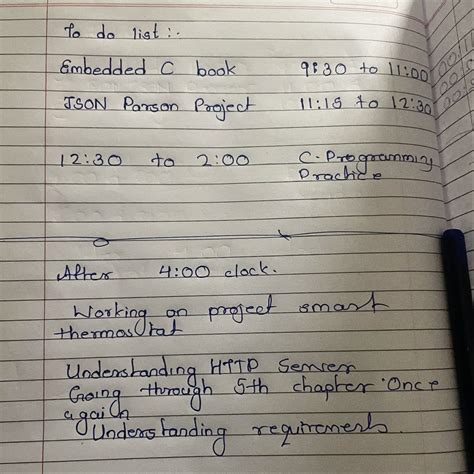 To do list :-
Embedded C book 9:30 to 11:00
JSON Parson Project 11:15 to 12:30
12:30 to 2:00 C-Programming
Practice
After 4:00 clock.
Working on project smart
thermostat
Understanding HTTP Server
Going through 5-th chapter Once
again
Understanding requirements.